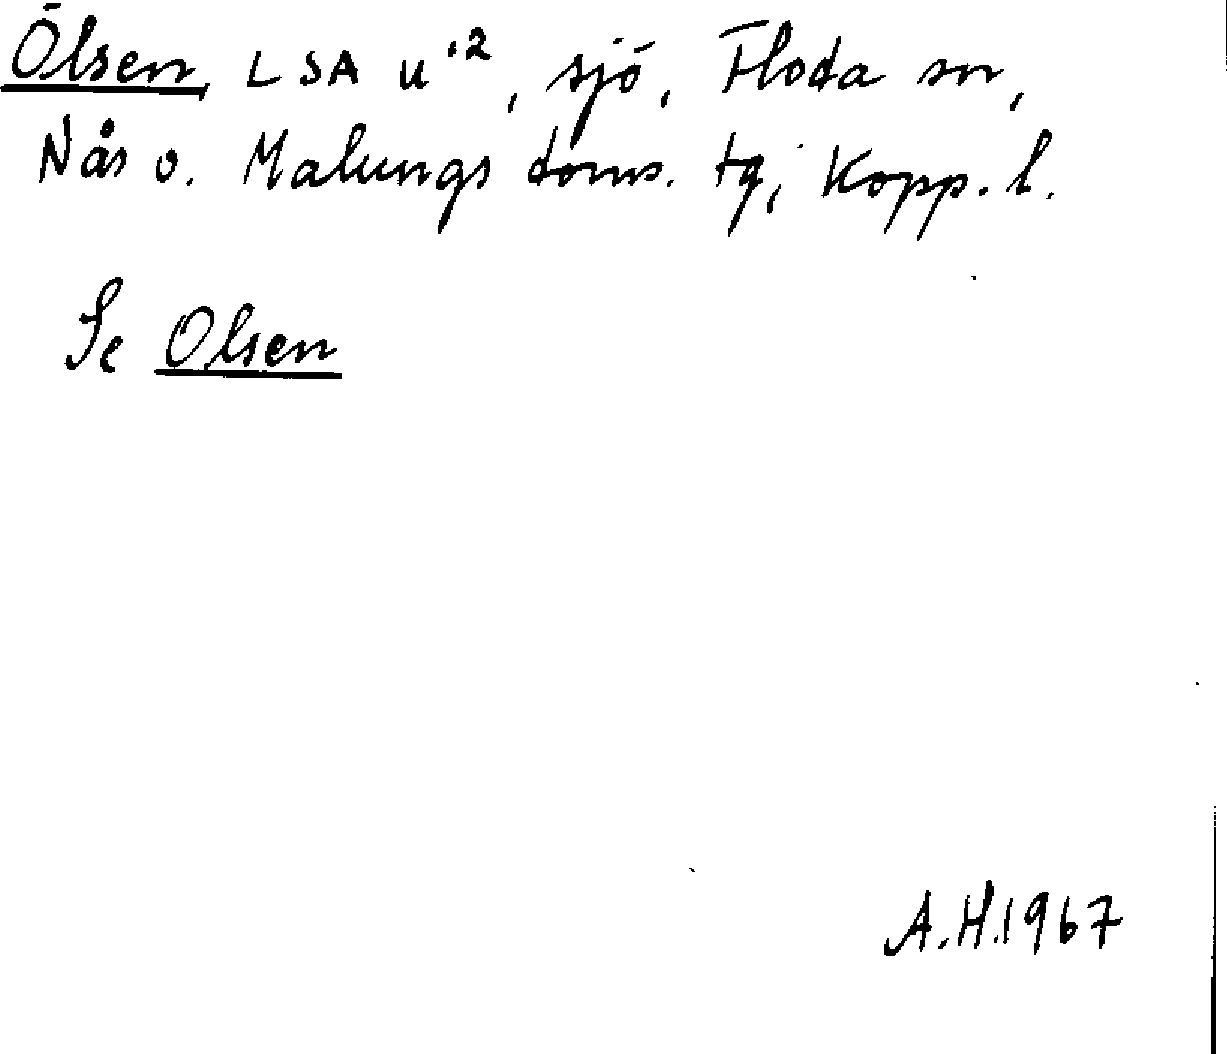 Ölsen, LSA u'², sjö, Floda sn,
Nås o. Malungs doms. tg, Kopp. l.
Se Olsen
A.H.1967